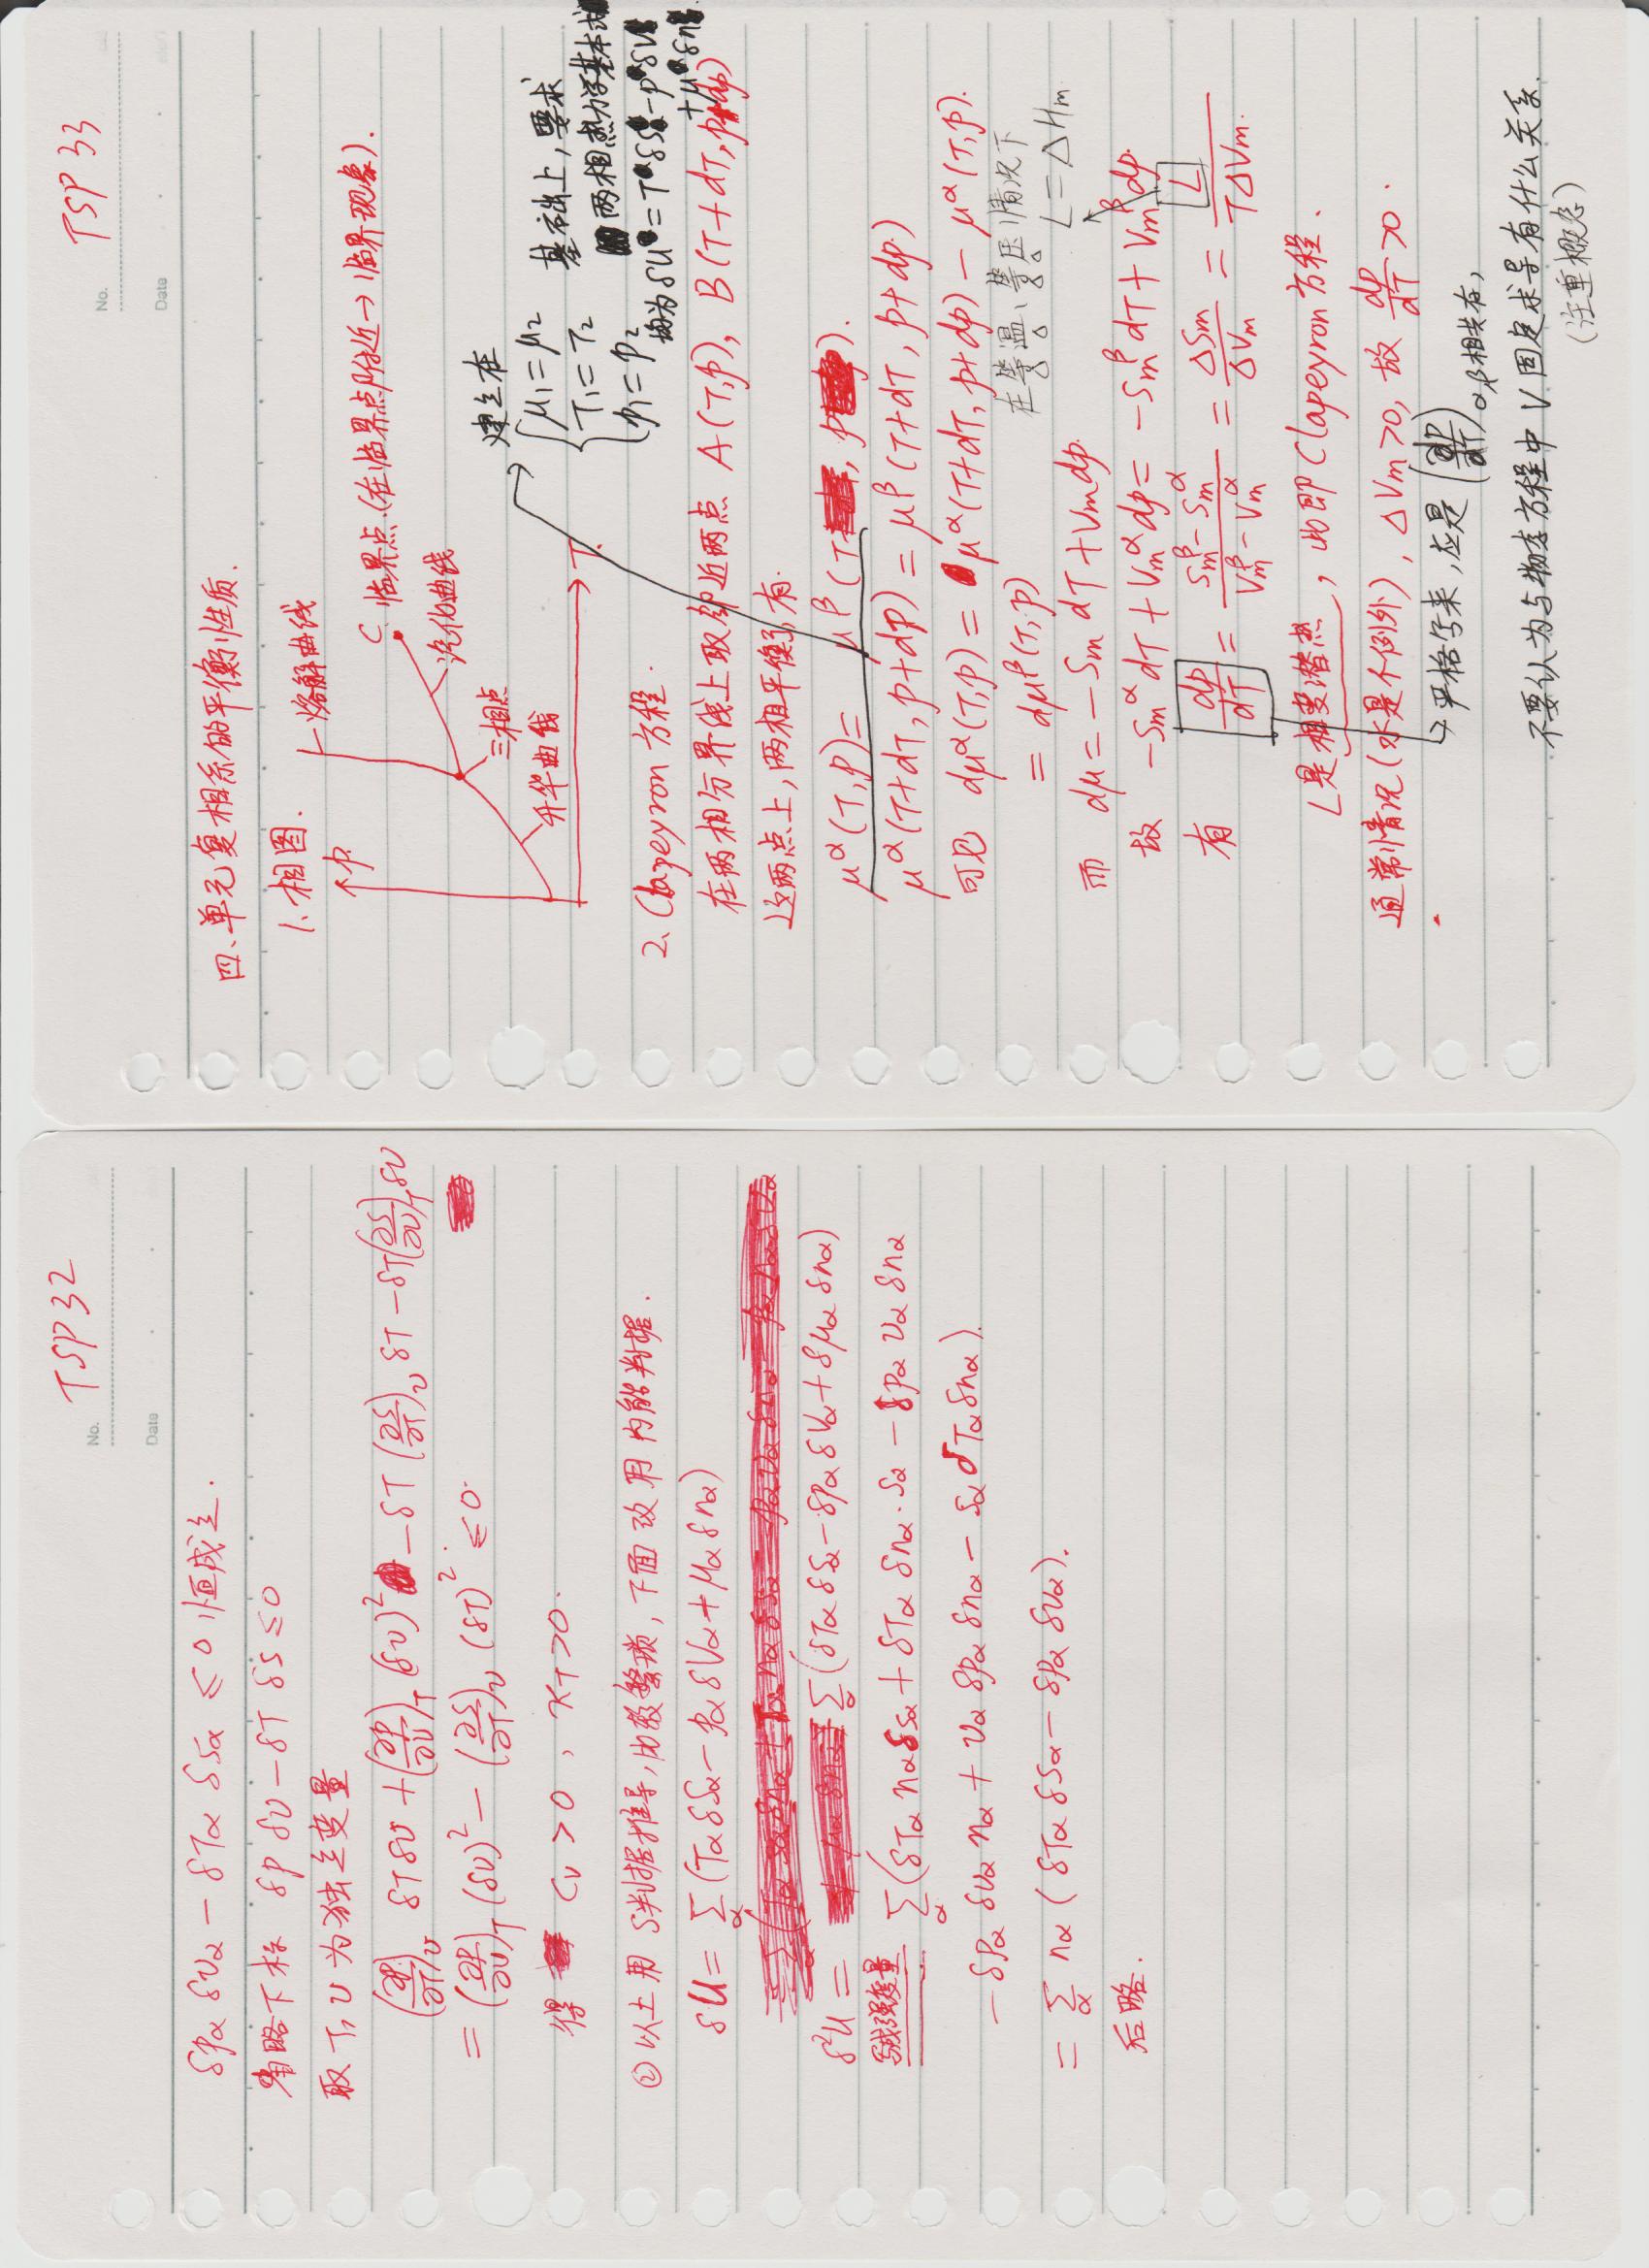 No. TSP 32
Date
δpα δvα − δTα δsα ≤ 0 恒成立.
省略下标 δp δv − δT δs ≤ 0
取 T, v 为独立变量
(∂p/∂T)_v δT δv + (∂p/∂v)_T (δv)² − δT (∂s/∂T)_v δT − δT (∂s/∂v)_T δv
= (∂p/∂v)_T (δv)² − (∂s/∂T)_v (δT)² ≤ 0.
得 Cv > 0 , κT > 0.
② 以上用 S判据推导, 比较繁琐, 下面改用内能判据.
δU = Σα (Tα δSα − pα δVα + μα δnα)
δ²U = Σα (δTα δSα − δpα δVα + δμα δnα)
写成强度量 Σα (δTα nα δsα + δTα δnα · sα − δpα vα δnα
− δpα δvα nα + vα δpα δnα − sα δTα δnα).
= Σα nα (δTα δsα − δpα δvα).
后略.
No. TSP 33
Date
四、单元复相系的平衡性质.
1. 相图.
熔解曲线
p.
C. 临界点.(在临界点附近→临界现象).
汽化曲线
三相点
升华曲线
T.
建立在
μ₁ = μ₂
T₁ = T₂
p₁ = p₂
基础上, 要求
两相热力学基本式
均为 δU = TδS − pδV
+ μδn
2. Clapeyron 方程.
在两相分界线上取邻近两点 A(T,p), B(T+dT, p+dp)
这两点上, 两相平衡, 有.
μ^α(T,p) = μ^β(T, p).
μ^α(T+dT, p+dp) = μ^β(T+dT, p+dp)
可见 dμ^α(T,p) = μ^α(T+dT, p+dp) − μ^α(T,p).
= dμ^β(T,p)
在等温、等压情况下
L = ΔHm.
而 dμ = −Sm dT + Vm dp.
故 −Sm^α dT + Vm^α dp = −Sm^β dT + Vm^β dp.
有 dp/dT = (Sm^β − Sm^α)/(Vm^β − Vm^α) = ΔSm/ΔVm = L/(TΔVm).
L是相变潜热, 此即 Clapeyron 方程.
通常情况(水是个例外), ΔVm>0, 故 dp/dT >0.
→ 严格写来, 应是 (dp/dT)α,β相共存,
不要认为与物态方程中 V 固定求导有什么关系.
(注重概念)